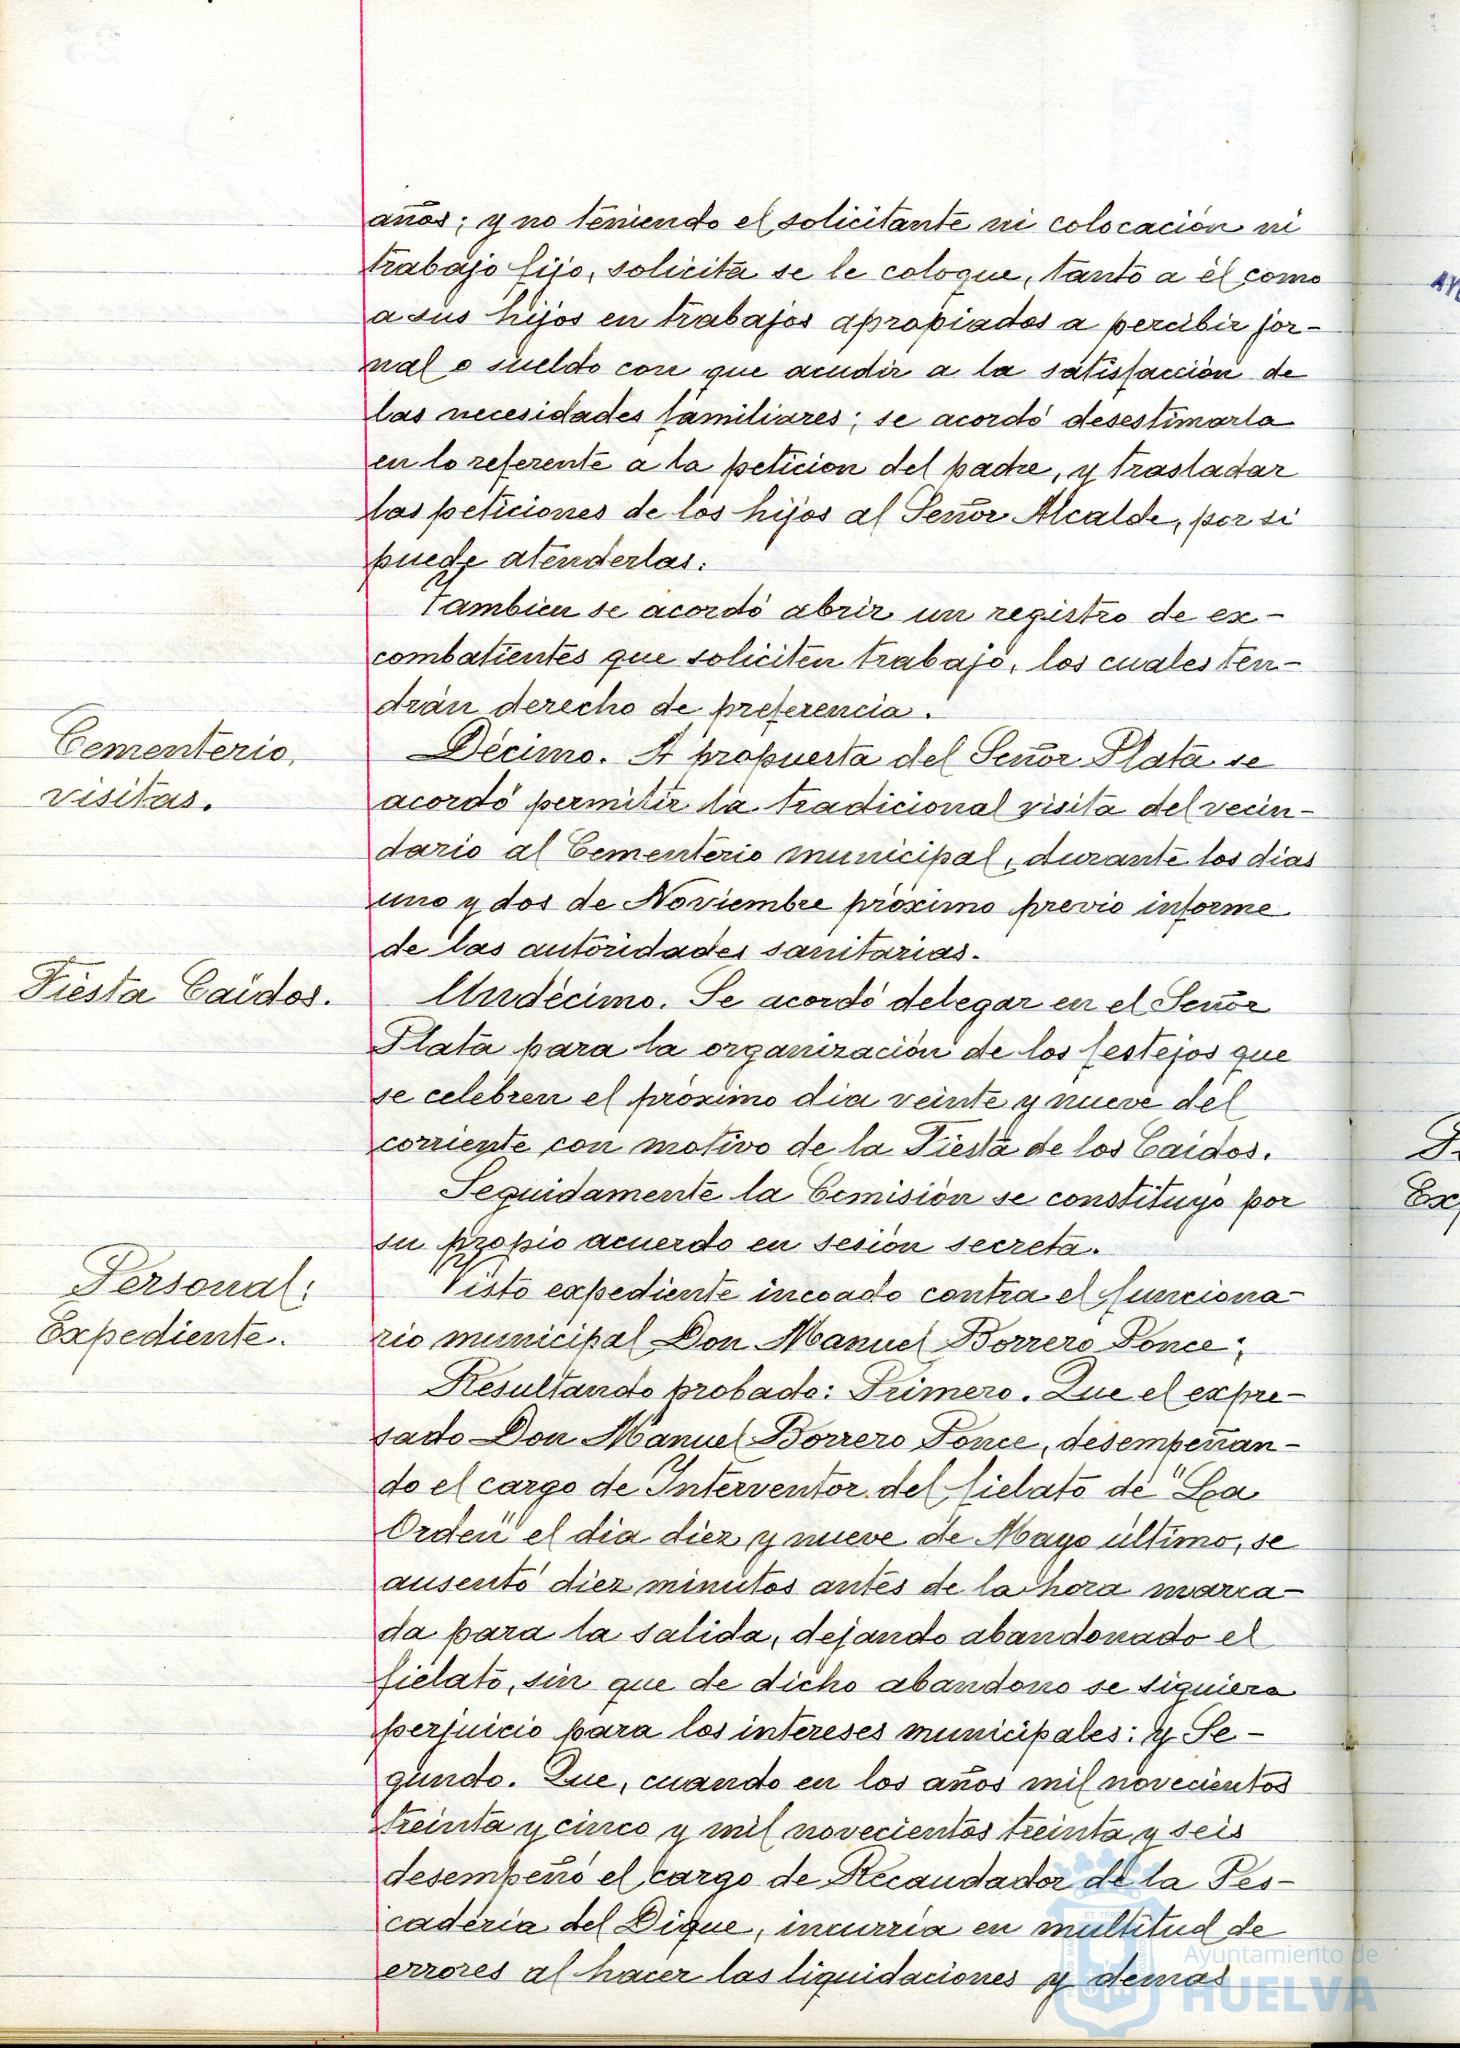 años; y no teniendo el solicitante ni colocación ni
trabajo fijo, solicita se le coloque, tanto a él como
a sus hijos en trabajos apropiados a percibir jor-
nal o sueldo con que acudir a la satisfacción de
las necesidades familiares; se acordó desestimarla
en lo referente a la peticion del padre, y trasladar
las peticiones de los hijos al Señor Alcalde, por si
puede atenderlas.
Tambien se acordó abrir un registro de ex-
combatientes que soliciten trabajo, los cuales ten-
drán derecho de preferencia.
Cementerio,
visitas.
Décimo. A propuesta del Señor Plata se
acordó permitir la tradicional visita del vecin-
dario al Cementerio municipal, durante los dias
uno y dos de Noviembre próximo previo informe
de las autoridades sanitarias.
Fiesta Caídos.
Undécimo. Se acordó delegar en el Señor
Plata para la organización de los festejos que
se celebren el próximo dia veinte y nueve del
corriente con motivo de la Fiesta de los Caidos.
Seguidamente la Comisión se constituyó por
su propio acuerdo en sesión secreta.
Personal:
Expediente.
Visto expediente incoado contra el funciona-
rio municipal Don Manuel Borrero Ponce;
Resultando probado: Primero. Que el expre-
sado Don Manuel Borrero Ponce, desempeñan-
do el cargo de Interventor del fielato de "La
Orden" el dia diez y nueve de Mayo último, se
ausentó diez minutos antes de la hora marca-
da para la salida, dejando abandonado el
fielato, sin que de dicho abandono se siguiera
perjuicio para los intereses municipales: y Se-
gundo. Que, cuando en los años mil novecientos
treinta y cinco y mil novecientos treinta y seis
desempeñó el cargo de Recaudador de la Pes-
cadería del Dique, incurría en multitud de
errores al hacer las liquidaciones y demas
Ayuntamiento de
HUELVA